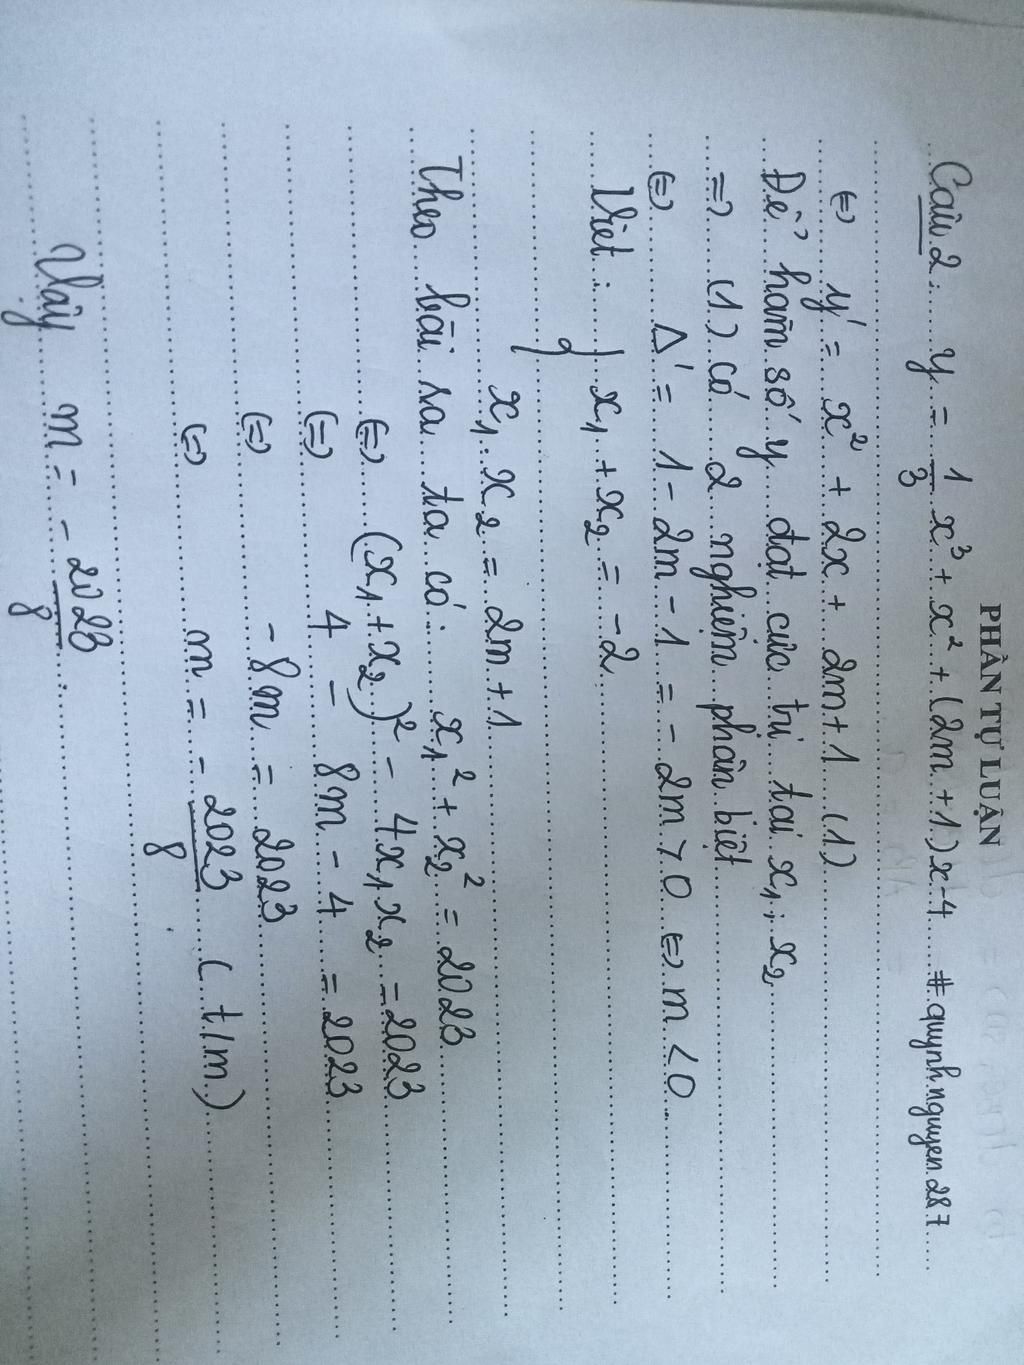 PHẦN TỰ LUẬN
Câu 2: y = 1/3 x³ + x² + (2m + 1) x - 4 # quynhnguyen287
⇔ y' = x² + 2x + 2m + 1 (1)
Để hàm số y đạt cực trị tại x₁; x₂
⇒ (1) có 2 nghiệm phân biệt
⇔ Δ' = 1 - 2m - 1 = - 2m > 0 ⇔ m < 0
Viet: { x₁ + x₂ = - 2
x₁ . x₂ = 2m + 1
Theo bài ra ta có: x₁² + x₂² = 2023
⇔ (x₁ + x₂)² - 4x₁x₂ = 2023
⇔ 4 - 8m - 4 = 2023
⇔ - 8m = 2023
⇔ m = - 2023/8 (t/m)
Vậy m = - 2023/8.